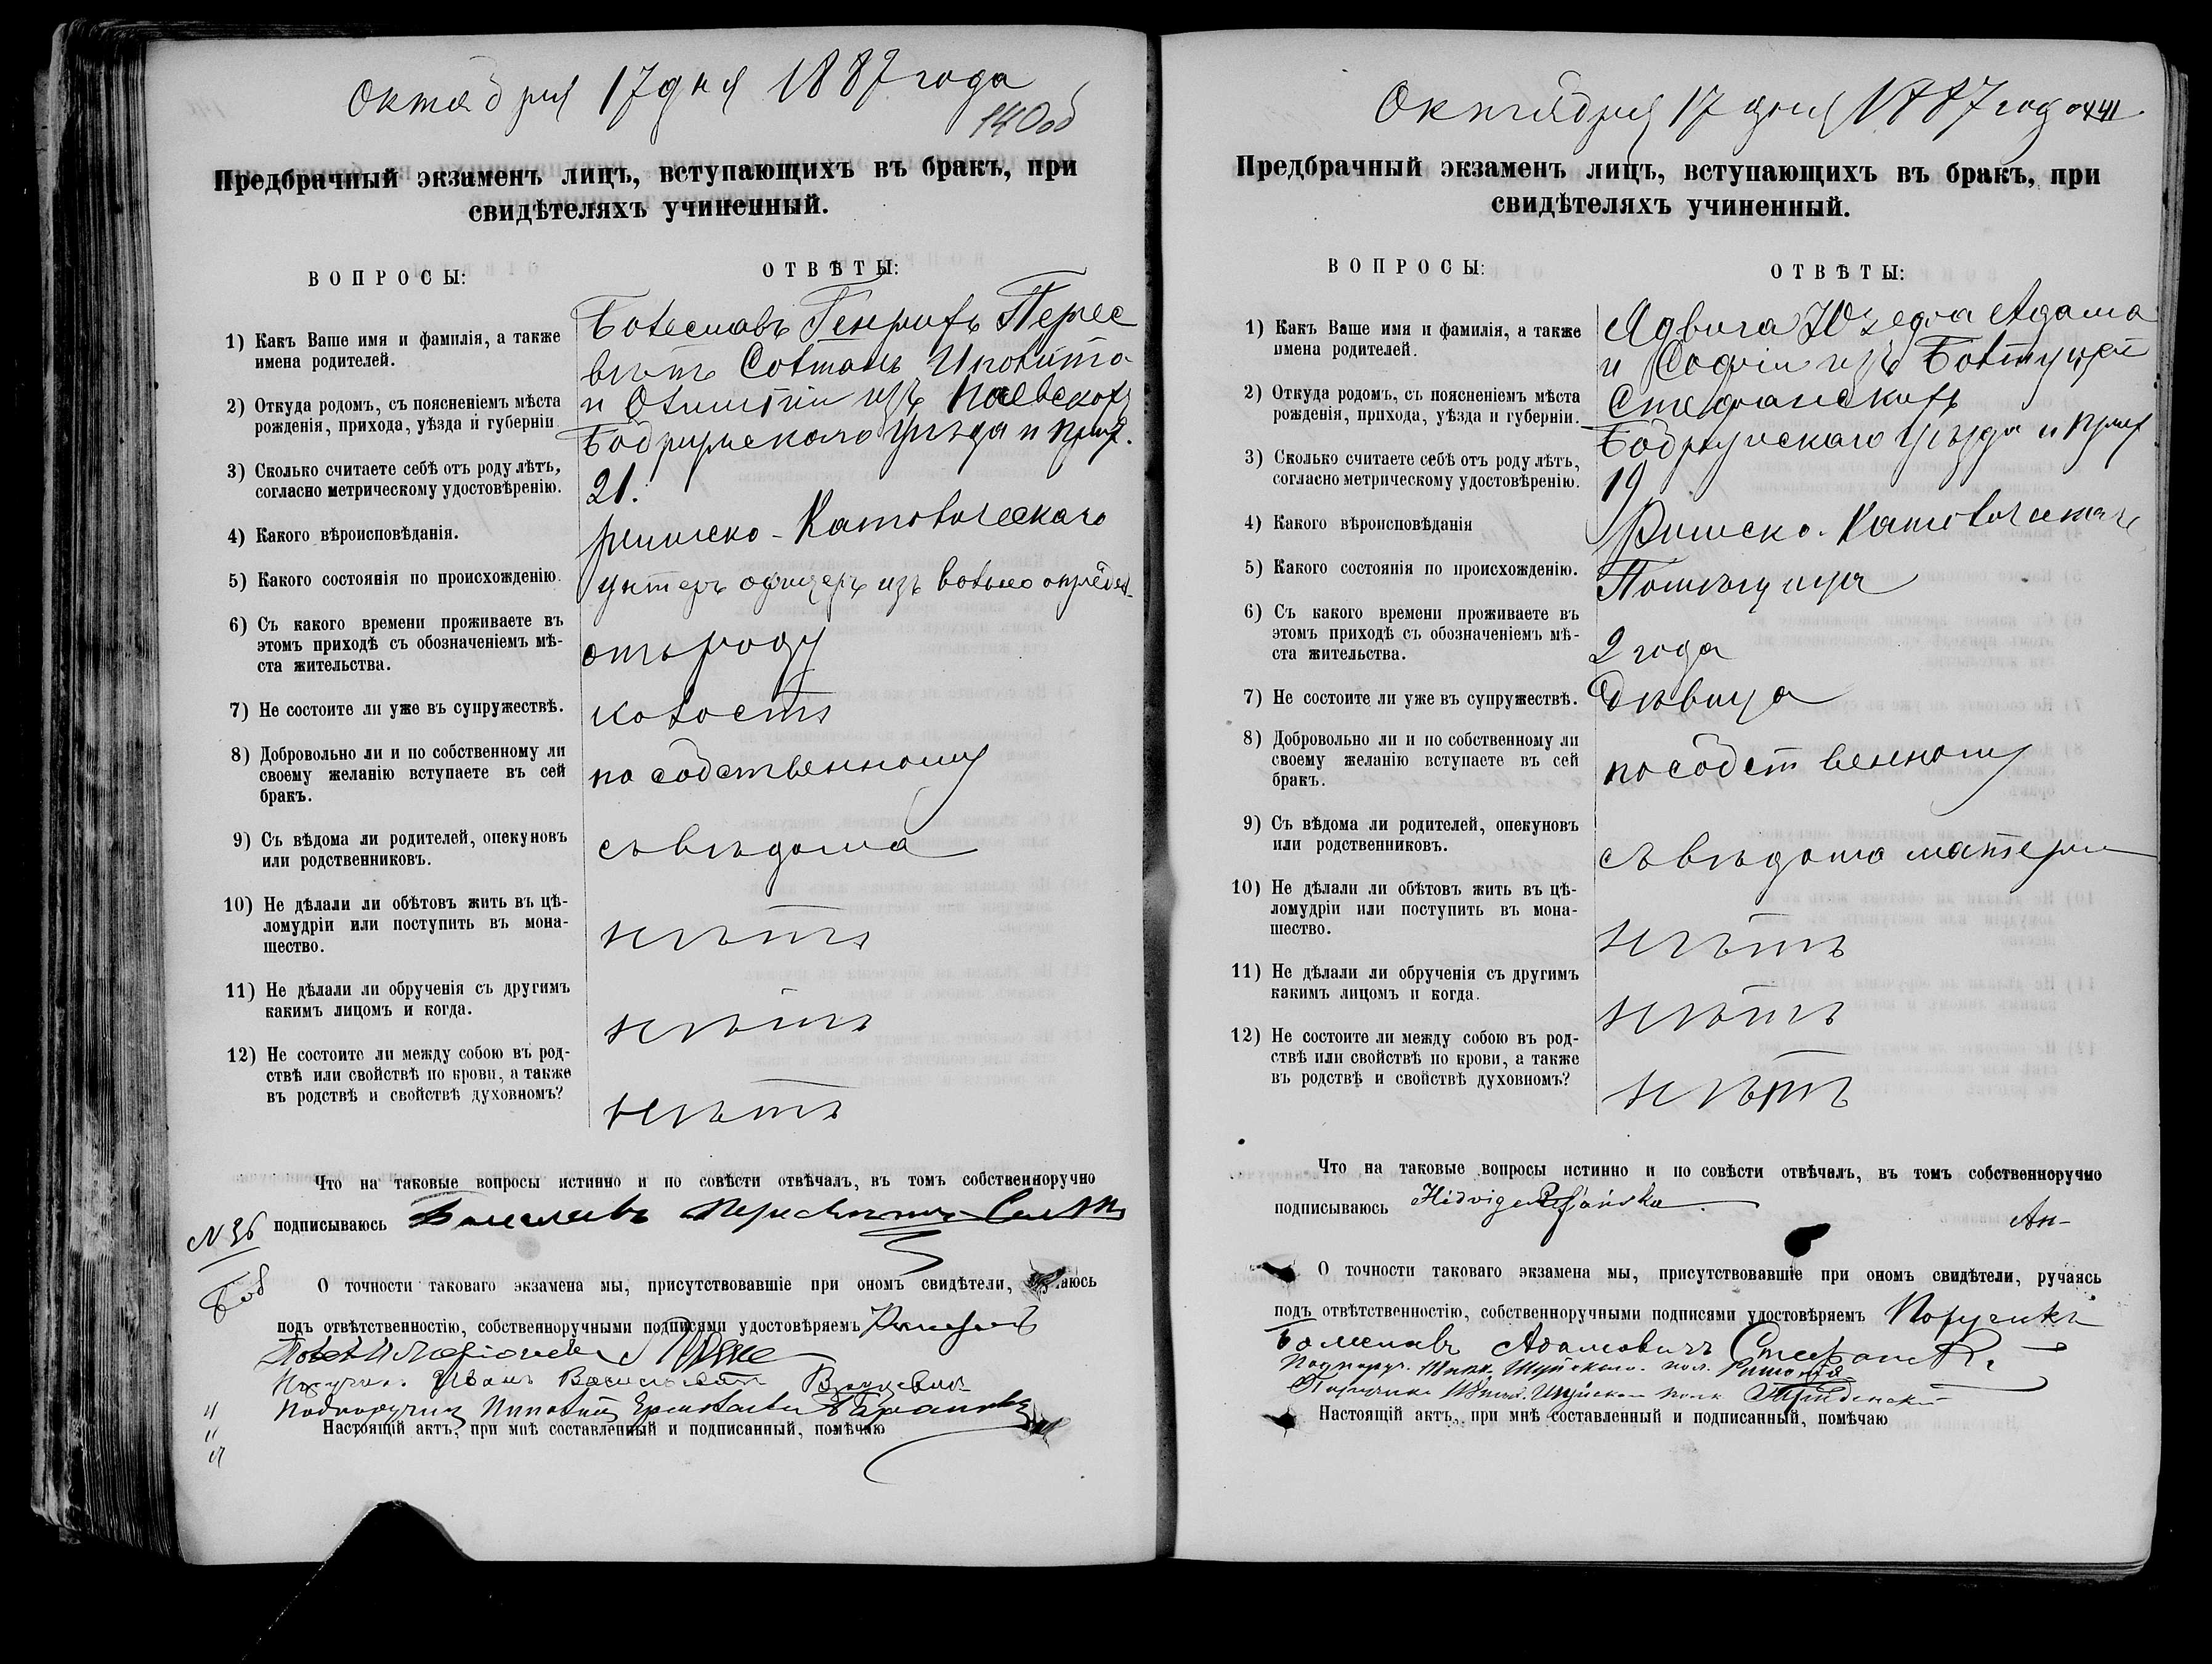 Октября 17 дня 1887 года
140об
Предбрачный экзаменъ лицъ, вступающихъ въ бракъ, при
свидѣтеляхъ учиненный.
ВОПРОСЫ:
ОТВѢТЫ:
1) Какъ Ваше имя и фамилія, а также
имена родителей.
2) Откуда родомъ, съ поясненіемъ мѣста
рожденія, прихода, уѣзда и губерніи.
3) Сколько считаете себѣ отъ роду лѣтъ,
согласно метрическому удостовѣренію.
4) Какого вѣроисповѣданія.
5) Какого состоянія по происхожденію.
6) Съ какого времени проживаете въ
этомъ приходѣ съ обозначеніемъ мѣ-
ста жительства.
7) Не состоите ли уже въ супружествѣ.
8) Добровольно ли и по собственному ли
своему желанію вступаете въ сей
бракъ.
9) Съ вѣдома ли родителей, опекуновъ
или родственниковъ.
10) Не дѣлали ли обѣтовъ жить въ цѣ-
ломудріи или поступить въ мона-
шество.
11) Не дѣлали ли обрученія съ другимъ
какимъ лицомъ и когда.
12) Не состоите ли между собою въ род-
ствѣ или свойствѣ по крови, а также
въ родствѣ и свойствѣ духовномъ?
Болеславъ Генрихъ Перес
вѣтъ Солтанъ Ипполита
и изъ
Бобруйскаго Уѣзда и прих.
21.
римско-Католическаго
унтеръ офицеръ изъ вольно опредѣл-
отъ роду
холостъ
по собственному
съ вѣдома
нѣтъ
нѣтъ
нѣтъ
Что на таковые вопросы истинно и по совѣсти отвѣчалъ, въ томъ собственноручно
подписываюсь Болеславъ Пересвѣтъ
N 36
Боб
О точности таковаго экзамена мы, присутствовавшіе при ономъ свидѣтели, ручаюсь
подъ отвѣтственностію, собственноручными подписями удостовѣряемъ
Иванъ Васильевичъ
Подпоручикъ
Настоящій актъ, при мнѣ составленный и подписанный, помѣчаю
Октября 17 дня 1887 года 141
Предбрачный экзаменъ лицъ, вступающихъ въ бракъ, при
свидѣтеляхъ учиненный.
ВОПРОСЫ:
ОТВѢТЫ:
1) Какъ Ваше имя и фамилія, а также
имена родителей.
2) Откуда родомъ, съ поясненіемъ мѣста
рожденія, прихода, уѣзда и губерніи.
3) Сколько считаете себѣ отъ роду лѣтъ,
согласно метрическому удостовѣренію.
4) Какого вѣроисповѣданія
5) Какого состоянія по происхожденію.
6) Съ какого времени проживаете въ
этомъ приходѣ съ обозначеніемъ мѣ-
ста жительства.
7) Не состоите ли уже въ супружествѣ.
8) Добровольно ли и по собственному ли
своему желанію вступаете въ сей
бракъ.
9) Съ вѣдома ли родителей, опекуновъ
или родственниковъ.
10) Не дѣлали ли обѣтовъ жить въ цѣ-
ломудріи или поступить въ мона-
шество.
11) Не дѣлали ли обрученія съ другимъ
какимъ лицомъ и когда.
12) Не состоите ли между собою въ род-
ствѣ или свойствѣ по крови, а также
въ родствѣ и свойствѣ духовномъ?
Ядвига Юзефа Адама
и Софіи изъ
Стефанскихъ
Бобруйскаго Уѣзда и прих
19
Римско-Католическаго
Помѣщица
2 года
Дѣвица
по собственному
съ вѣдома матери
нѣтъ
нѣтъ
нѣтъ
Что на таковые вопросы истинно и по совѣсти отвѣчалъ, въ томъ собственноручно
подписываюсь
О точности таковаго экзамена мы, присутствовавшіе при ономъ свидѣтели, ручаясь
подъ отвѣтственностію, собственноручными подписями удостовѣряемъ Поручикъ
Болеславъ Адамовичъ
Настоящій актъ, при мнѣ составленный и подписанный, помѣчаю